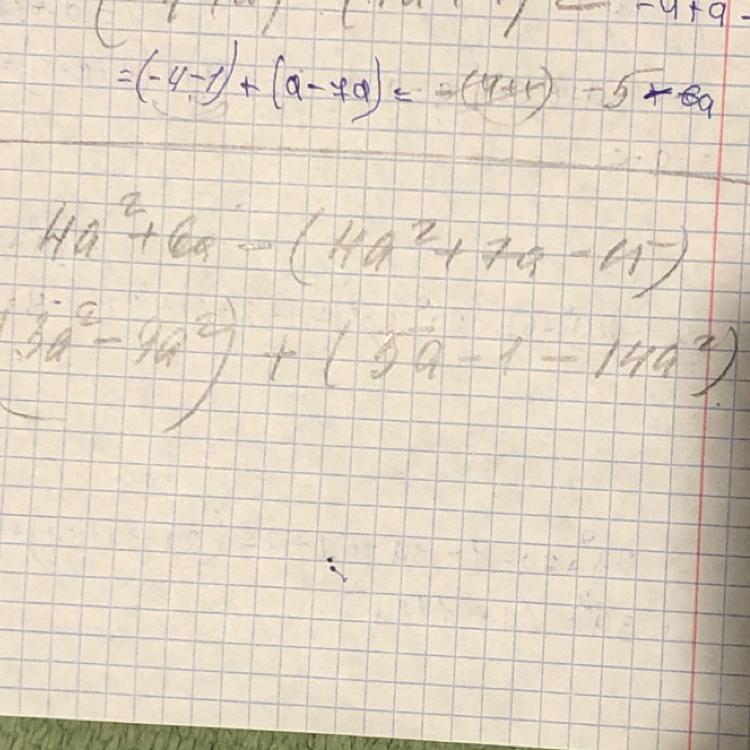 -4+a-
=(-4-1)+(a-7a)= -5+-6a
4a²+6a-(4a²+7a-15)
(3a²-9a²)+(5a-1-14a²)